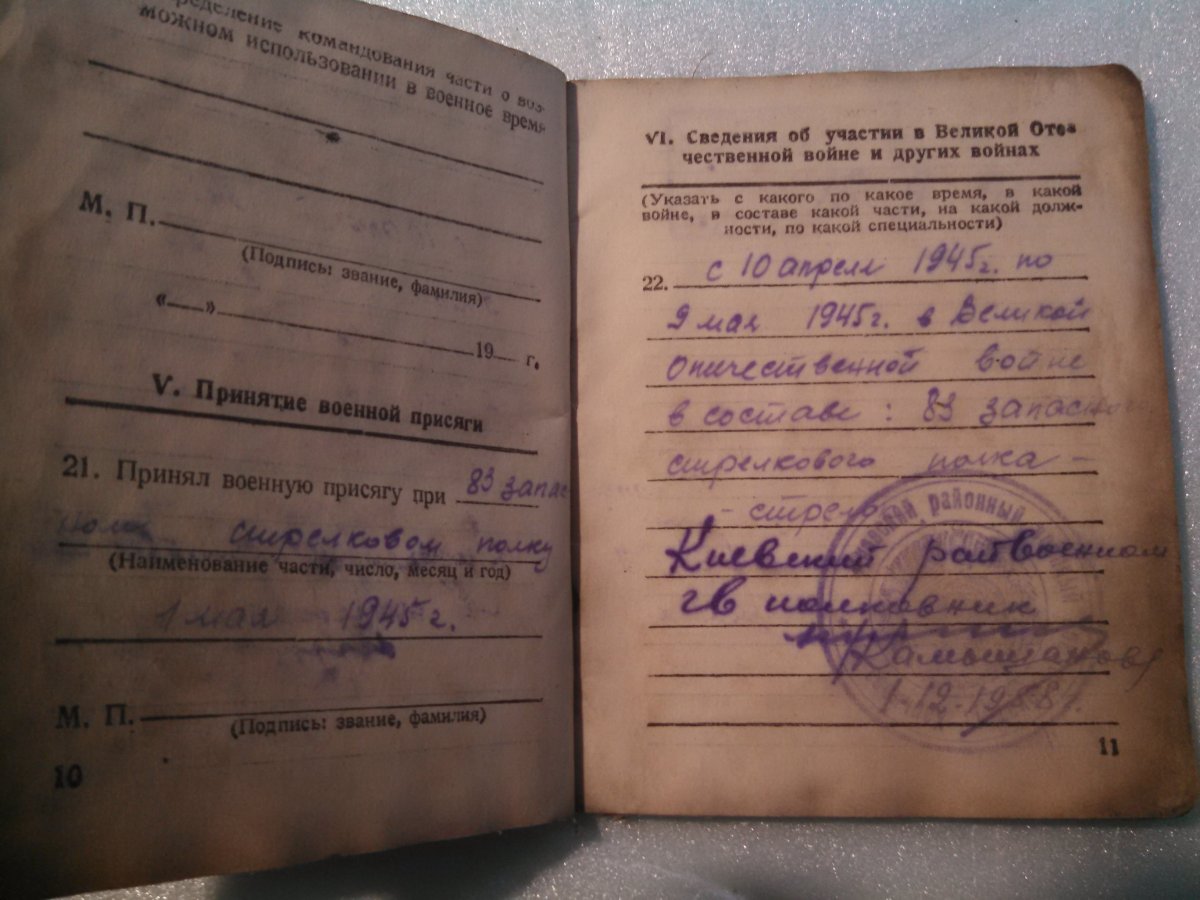 ределение командования части о воз-
можном использовании в военное время
М. П.
(Подпись: звание, фамилия)
«__»
19__ г.
V. Принятие военной присяги
21. Принял военную присягу при 83 запас
ном стрелковом полку
(Наименование части, число, месяц и год)
1 мая 1945 г.
М. П.
(Подпись: звание, фамилия)
10
VI. Сведения об участии в Великой Оте-
чественной войне и других войнах
(Указать с какого по какое время, в какой
войне, в составе какой части, на какой долж-
ности, по какой специальности)
22. с 10 апреля 1945г. по
9 мая 1945г. в Великой
отичественной войне
в составе: 83 запасного
стрелкового полка -
- стрелок
Киевский райвоенком
гв полковник
районный
1-12-1958г.
11